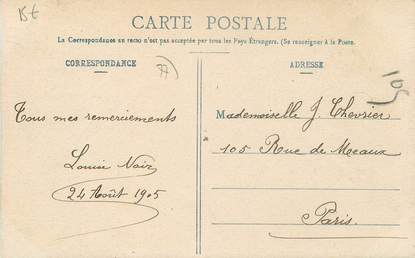 15€
CARTE POSTALE
La Correspondance au recto n'est pas acceptée par tous les Pays Étrangers. (Se renseigner à la Poste.
CORRESPONDANCE
77
ADRESSE
105
Tous mes remerciements
Louise Noir
24 Août 1905
Mademoiselle J. Chevrier
105 Rue de Meaux
Paris.